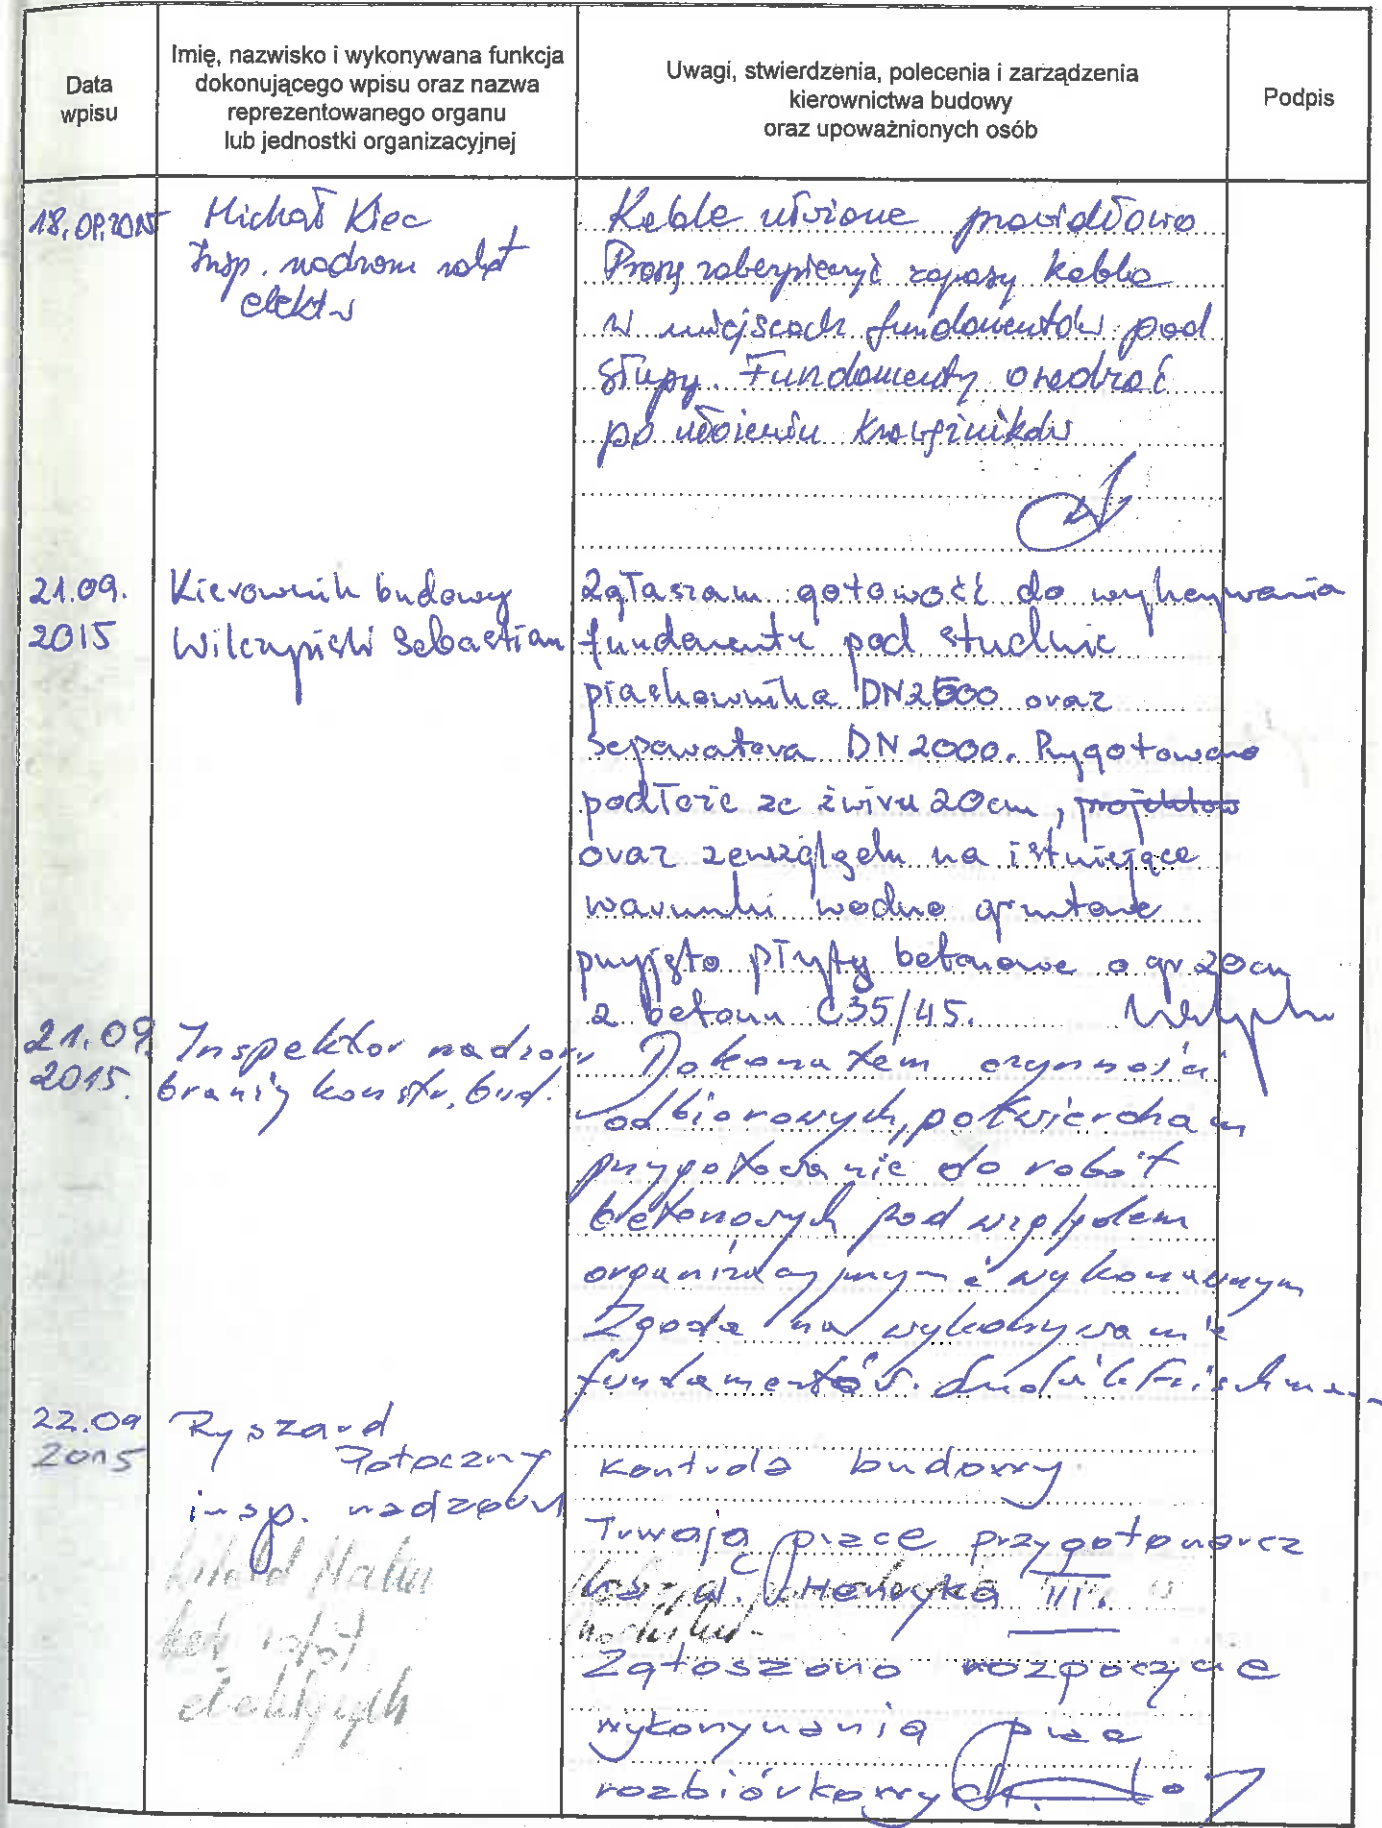 Data
wpisu
Imię, nazwisko i wykonywana funkcja
dokonującego wpisu oraz nazwa
reprezentowanego organu
lub jednostki organizacyjnej
Uwagi, stwierdzenia, polecenia i zarządzenia
kierownictwa budowy
oraz upoważnionych osób
Podpis
18.09.2015
Michał Kiec
Insp. nadzoru robót
elektr
Kable ułożone prawidłowo
Proszę zabezpieczyć zapasy kabla
w miejscach fundamentów pod
słupy. Fundamenty osadzać
po ułożeniu krawężników
21.09.
2015
Kierownik budowy
Wilczyński Sebastian
Zgłaszam gotowość do wykonywania
fundamentu pod studnie
piaskownika DN2500 oraz
separatora DN2000. Przygotowano
podłoże ze żwiru 20cm, projektow
oraz ze względu na istniejące
warunki wodno gruntowe
przyjęto płyty betonowe o gr 20cm
z betonu C35/45.
21.09.
2015.
Inspektor nadzoru
branży konstr. bud.
Dokonałem czynności
odbiorowych, potwierdzam
przygotowanie do robót
betonowych pod względem
organizacyjnym i wykonawczym
Zgoda na wykonywanie
fundamentów.
22.09
2015
Ryszard
Potoczny
insp. nadzoru
Kontrola budowy
Trwają prace przygotowawcz
Henryka III.
Zgłoszono rozpoczęcie
wykonywania prac
rozbiórkowych.